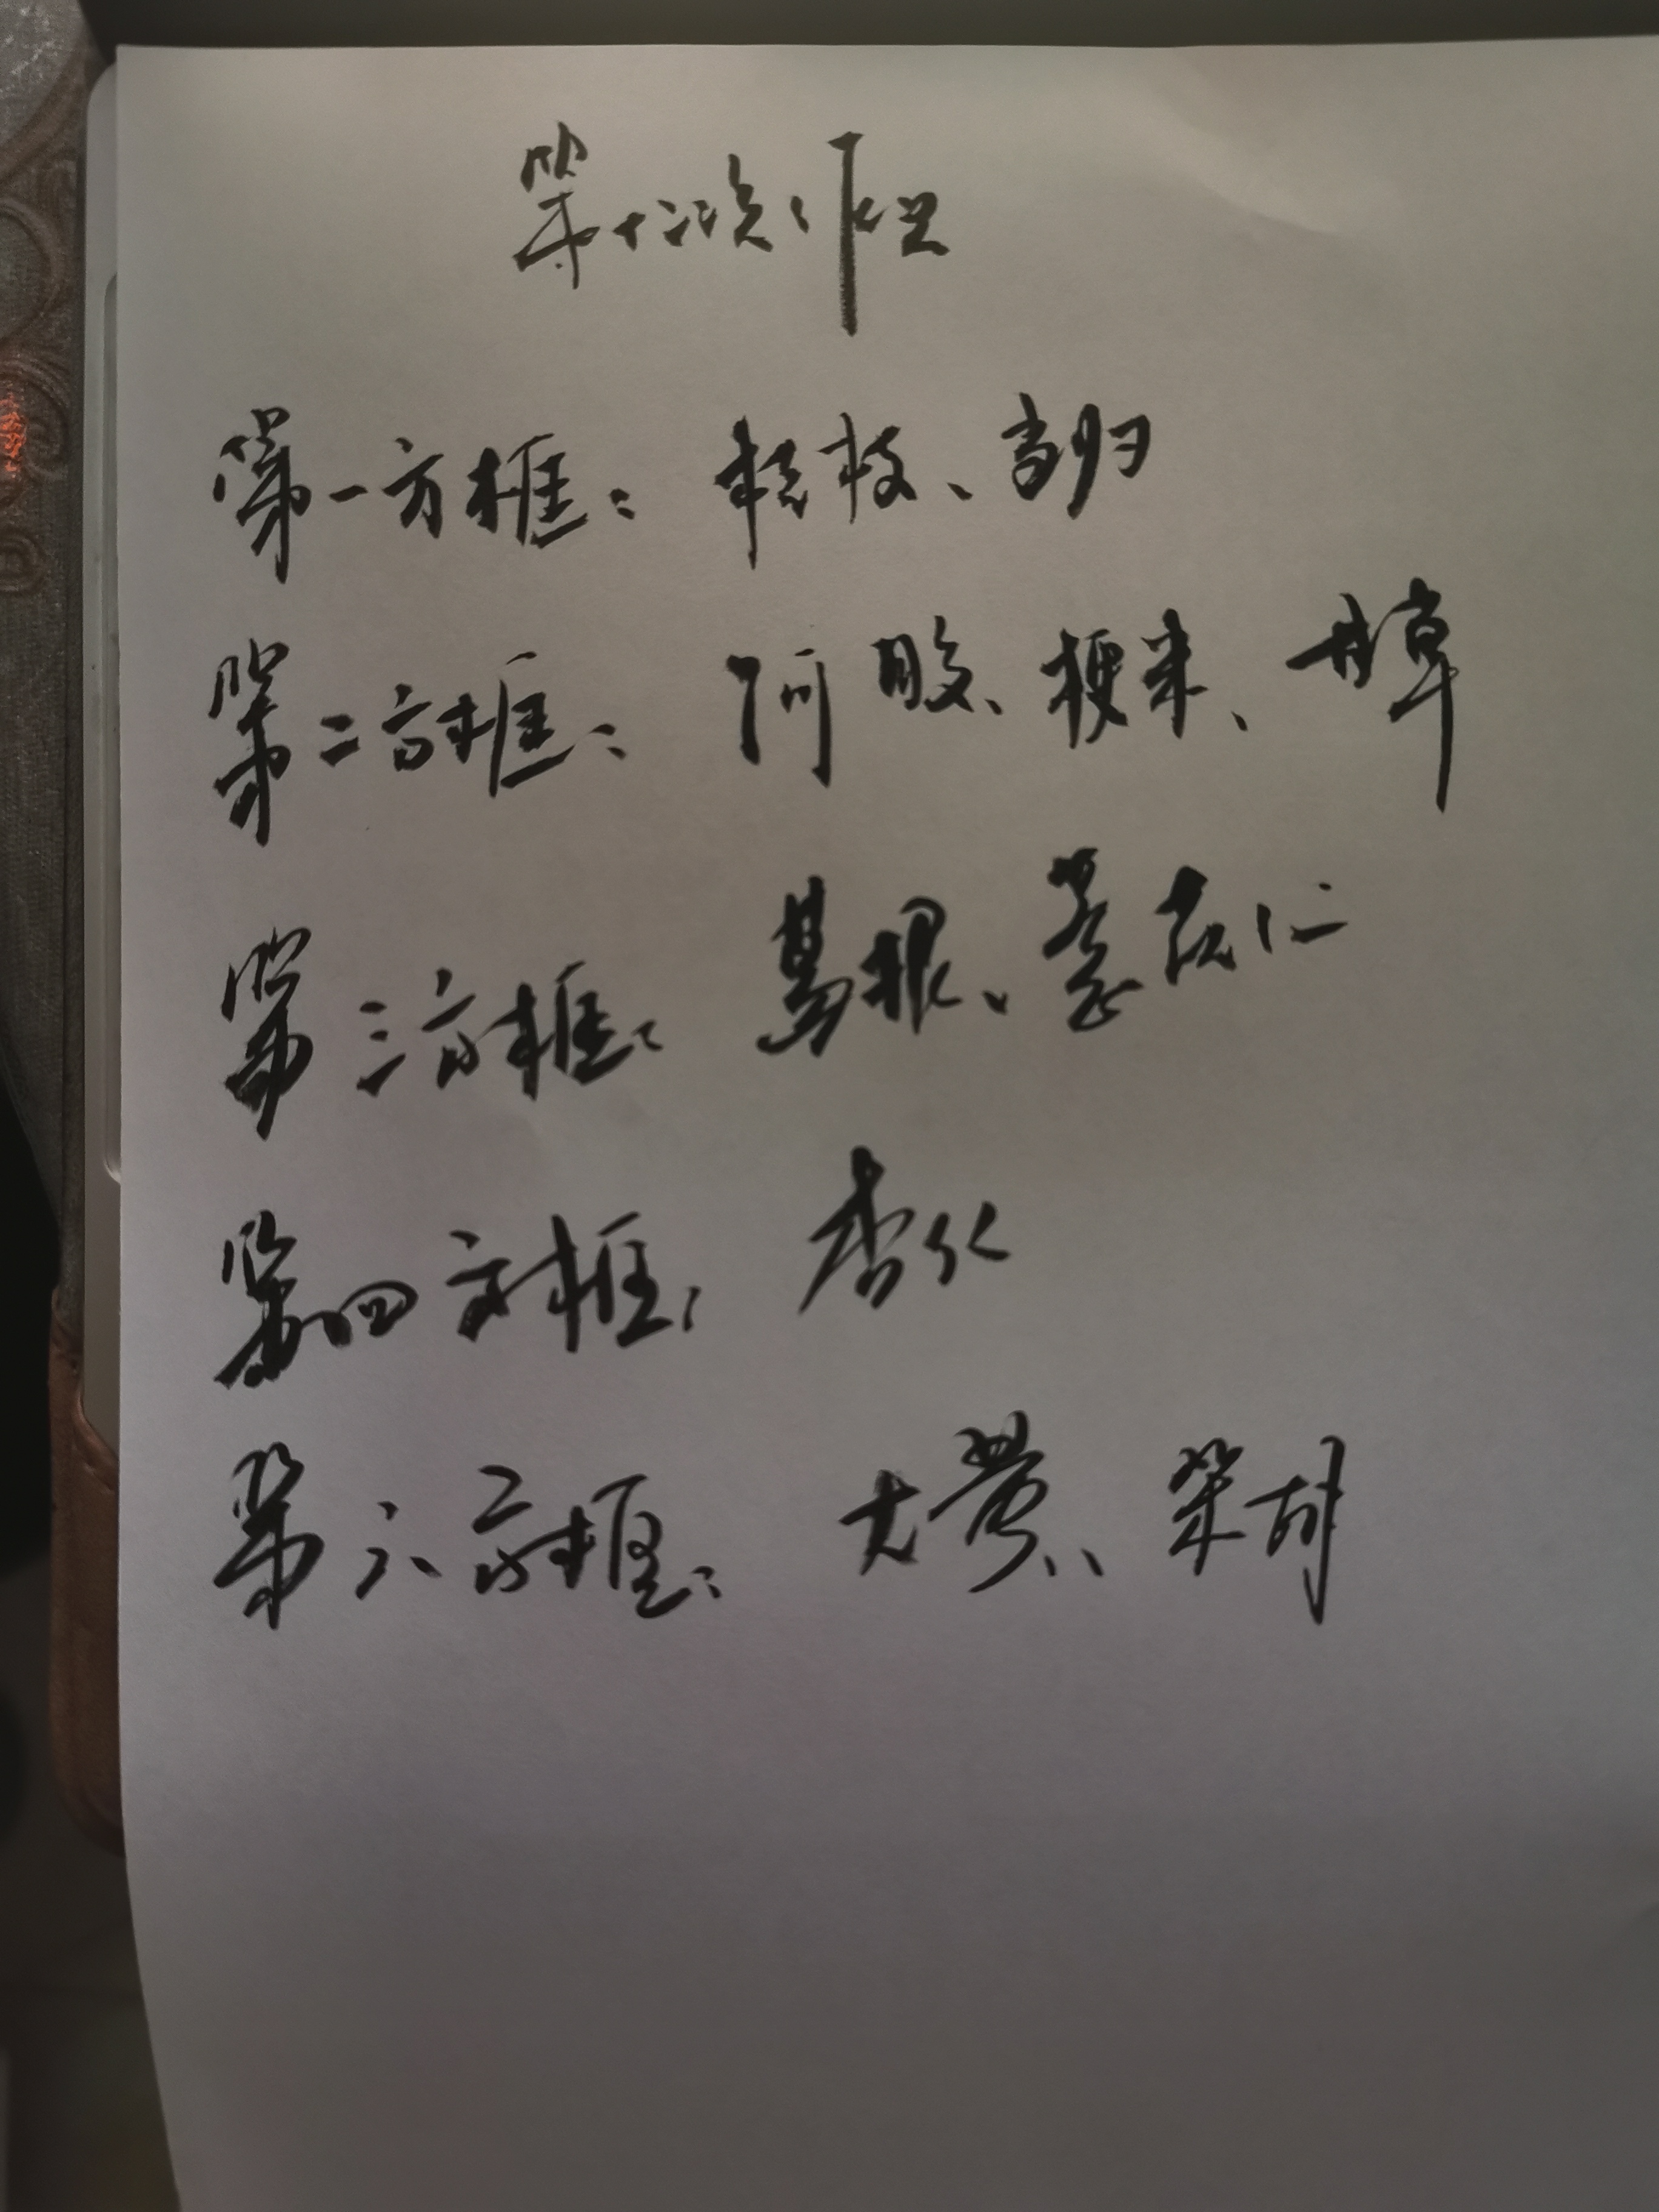 第十二次作业
第一方框：桂枝、当归
第二方框：阿胶、粳米、甘草
第三方框：葛根、薏苡仁
第四方框：杏仁
第六方框：大黄、柴胡